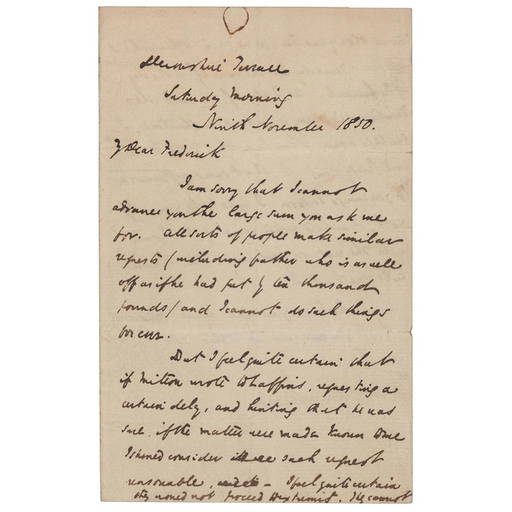 Devonshire Terrace
Saturday Morning
Ninth November 1850.
My Dear Frederick
I am sorry that I cannot
advance you the large sum you ask me
for. All sorts of people make similar
requests (including father who is as well
off as if he had put by ten thousand
pounds) and I cannot do such things
for ever.
But I feel quite certain that
if Mitton wrote Chaffins, requesting a
certain delay, and hinting that he was
sure, if the matter were made known
I should consider such request
reasonable, - I feel quite certain
they would not proceed to extremities. He cannot